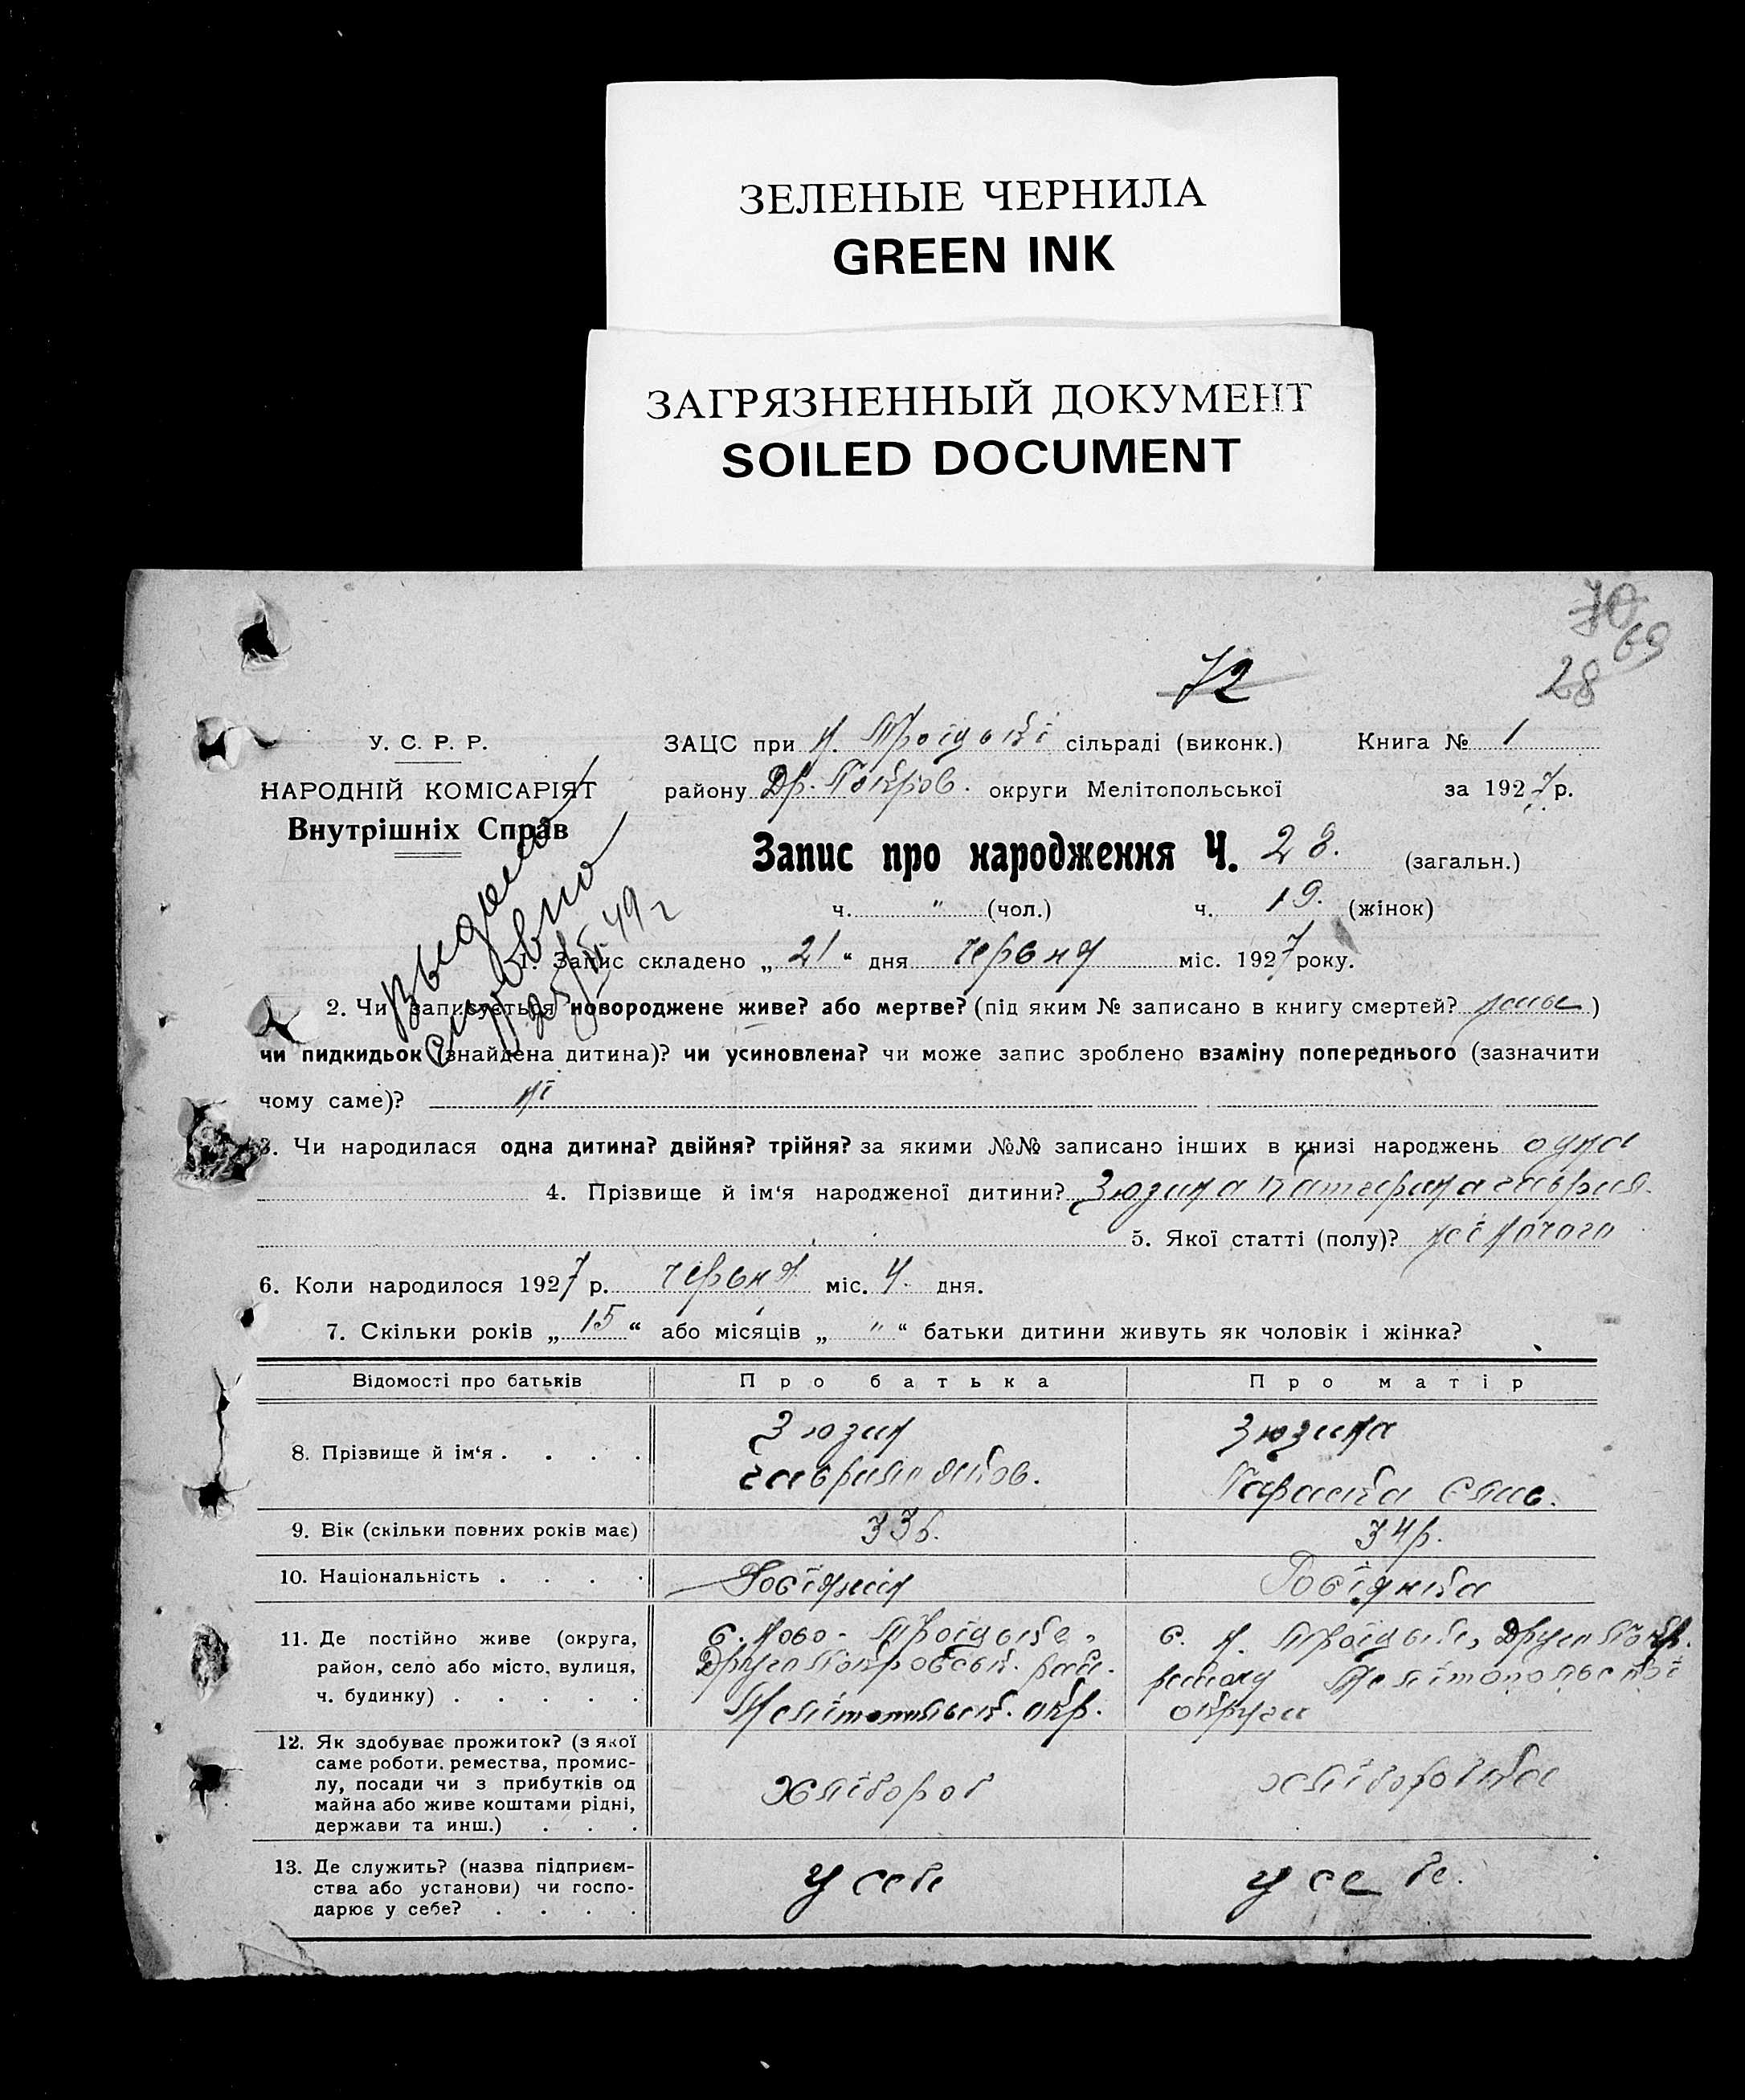 ЗЕЛЕНЫЕ ЧЕРНИЛА
GREEN INK
ЗАГРЯЗНЕННЫЙ ДОКУМЕНТ
SOILED DOCUMENT
70
69
28
72
У. С. Р. Р.
НАРОДНІЙ КОМІСАРІЯТ
Внутрішніх Справ
ЗАЦС при Н. Троїцькі сільраді (виконк.) Книга № 1
району Др. Покров. округи Мелітопольської за 1927 р.
Запис про народження Ч. 28. (загальн.)
ч. " (чол.) ч. 19. (жінок)
1. Запис складено „ 21 “ дня червня міс. 1927 року.
2. Чи записується новороджене живе? або мертве? (під яким № записано в книгу смертей? живе )
чи пидкидьок (знайдена дитина)? чи усиновлена? чи може запис зроблено взаміну попереднього (зазначити
чому саме)? ні
3. Чи народилася одна дитина? двійня? трійня? за якими №№ записано інших в книзі народжень одна
4. Прізвище й ім‘я народженої дитини? Зюзина Катерина Гаврил.
5. Якої статті (полу)? жіночого
6. Коли народилося 1927 р. червня міс. 4. дня.
7. Скільки років „ 15 “ або місяців „ " “ батьки дитини живуть як чоловік і жінка?
Відомості про батьків Про батька Про матір
8. Прізвище й ім‘я . . . . Зюзин Зюзина
Гаврило Яков. Параска
9. Вік (скільки повних років має) 33 р. 34 р.
10. Національність . . . . Росіянин Росіянка
11. Де постійно живе (округа, район, село або місто, вулиця, ч. будинку) . . . . .
с. Ново-Троїцьке,
Друго Покровськ. рай.
Мелітопольськ. окр.
с. Н. Троїцьке, Друго Покр.
району Мелітопольської
округи
12. Як здобуває прожиток? (з якої
саме роботи, ремества, промис-
лу, посади чи з прибутків од
майна або живе коштами рідні,
держави та инш.) . . .
хлібороб хліборобка
13. Де служить? (назва підприєм-
ства або установи) чи госпо-
дарює у себе? . . . .
у себе у себе.